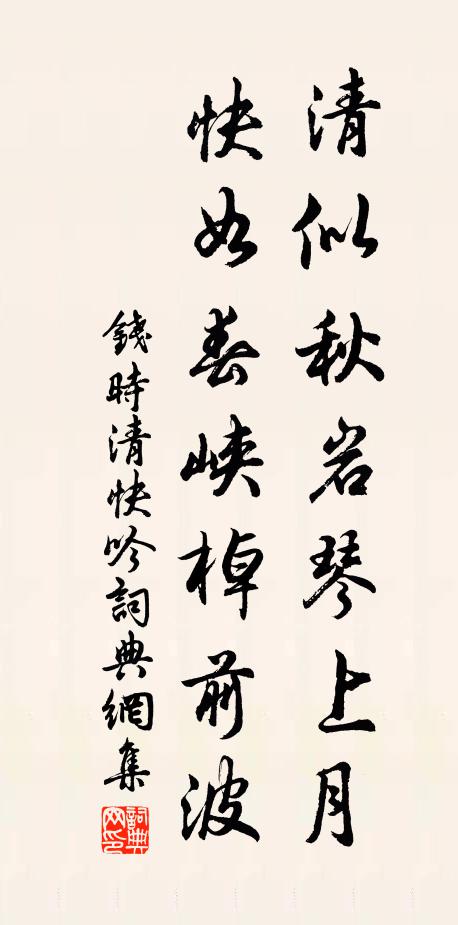 清似秋岩琴上月
快如春峡棹前波
錢時清快吟詞典網集
詞典网印